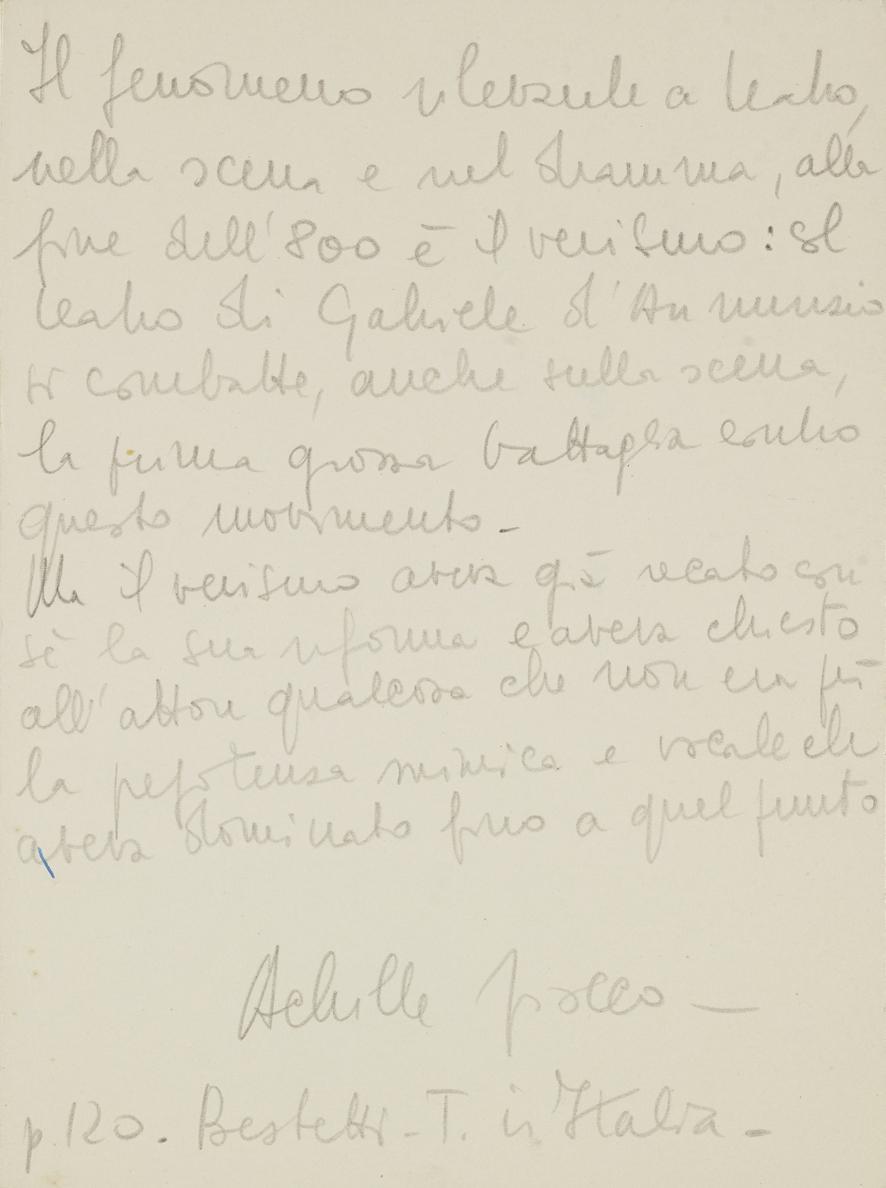 Il fenomeno rilevante a teatro,
nella scena e nel dramma, alla
fine dell'800 è il verismo: al
teatro di Gabriele d'Annunzio
si combatte, anche sulla scena,
la prima grossa battaglia contro
questo movimento -
Ma il verismo aveva già recato con
sè la sua riforma e aveva chiesto
all'attore qualcosa che non era più
la prepotenza mimica e vocale che
aveva dominato fino a quel punto
Achille Fiocco -
p. 120. Bestetti - T. in Italia -